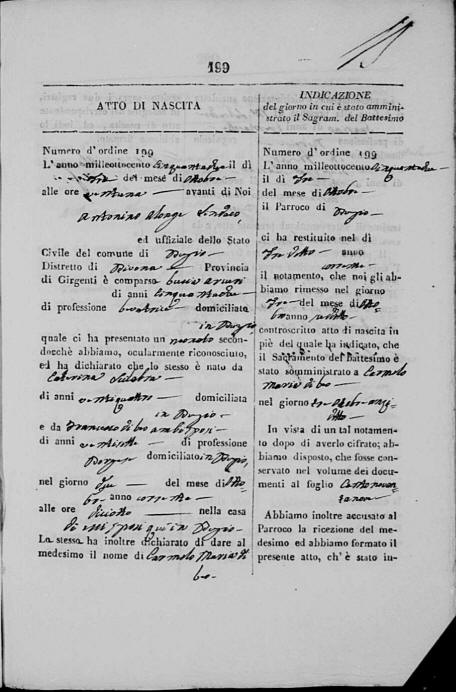 199
ATTO DI NASCITA
Numero d'ordine 199
L'anno milleottocento cinquantadue il dì
tre del mese di Ottobre
alle ore ventuna avanti di Noi
Antonino Sindaco
ed uffiziale dello Stato
Civile del comune di Burgio
Distretto di Bivona Provincia
di Girgenti è comparsa
di anni cinquantadue
di professione levatrice domiciliata
in Burgio
quale ci ha presentato un neonato secon-
docchè abbiamo, ocularmente riconosciuto,
ed ha dichiarato che lo stesso è nato da
Caterina
di anni ventiquattro domiciliata
in Burgio
e da Francesco di Leo ambi sposi
di anni ventisette di professione
domiciliato in Burgio
nel giorno tre del mese di Otto-
bre anno corrente
alle ore diciotto nella casa
di essi sposi qui in Burgio
La stessa ha inoltre dichiarato di dare al
medesimo il nome di Carmelo Maria di
Leo
INDICAZIONE
del giorno in cui è stato ammini-
strato il Sagram. del Battesimo
Numero d'ordine 199
L'anno milleottocento cinquantadue
il dì tre
del mese di Ottobre
il Parroco di Burgio
ci ha restituito nel dì
tre detto anno
corrente
il notamento, che noi gli ab-
biamo rimesso nel giorno
tre del mese di Otto-
bre anno suddetto
controscritto atto di nascita in
piè del quale ha indicato, che
il Sacramento del Battesimo è
stato somministrato a Carmelo
Maria di Leo
nel giorno tre Ottobre anzi-
detto
In vista di un tal notamen-
to dopo di averlo cifrato; ab-
biamo disposto, che fosse con-
servato nel volume dei docu-
menti al foglio Centonovan-
tanove
Abbiamo inoltre accusato al
Parroco la ricezione del me-
desimo ed abbiamo formato il
presente atto, ch' è stato in-